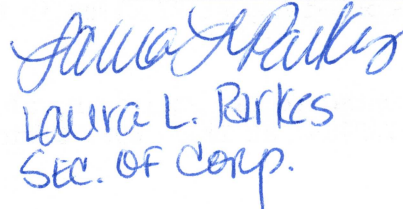 Laura L Parkes
Laura L. Parkes
SEC. OF CORP.